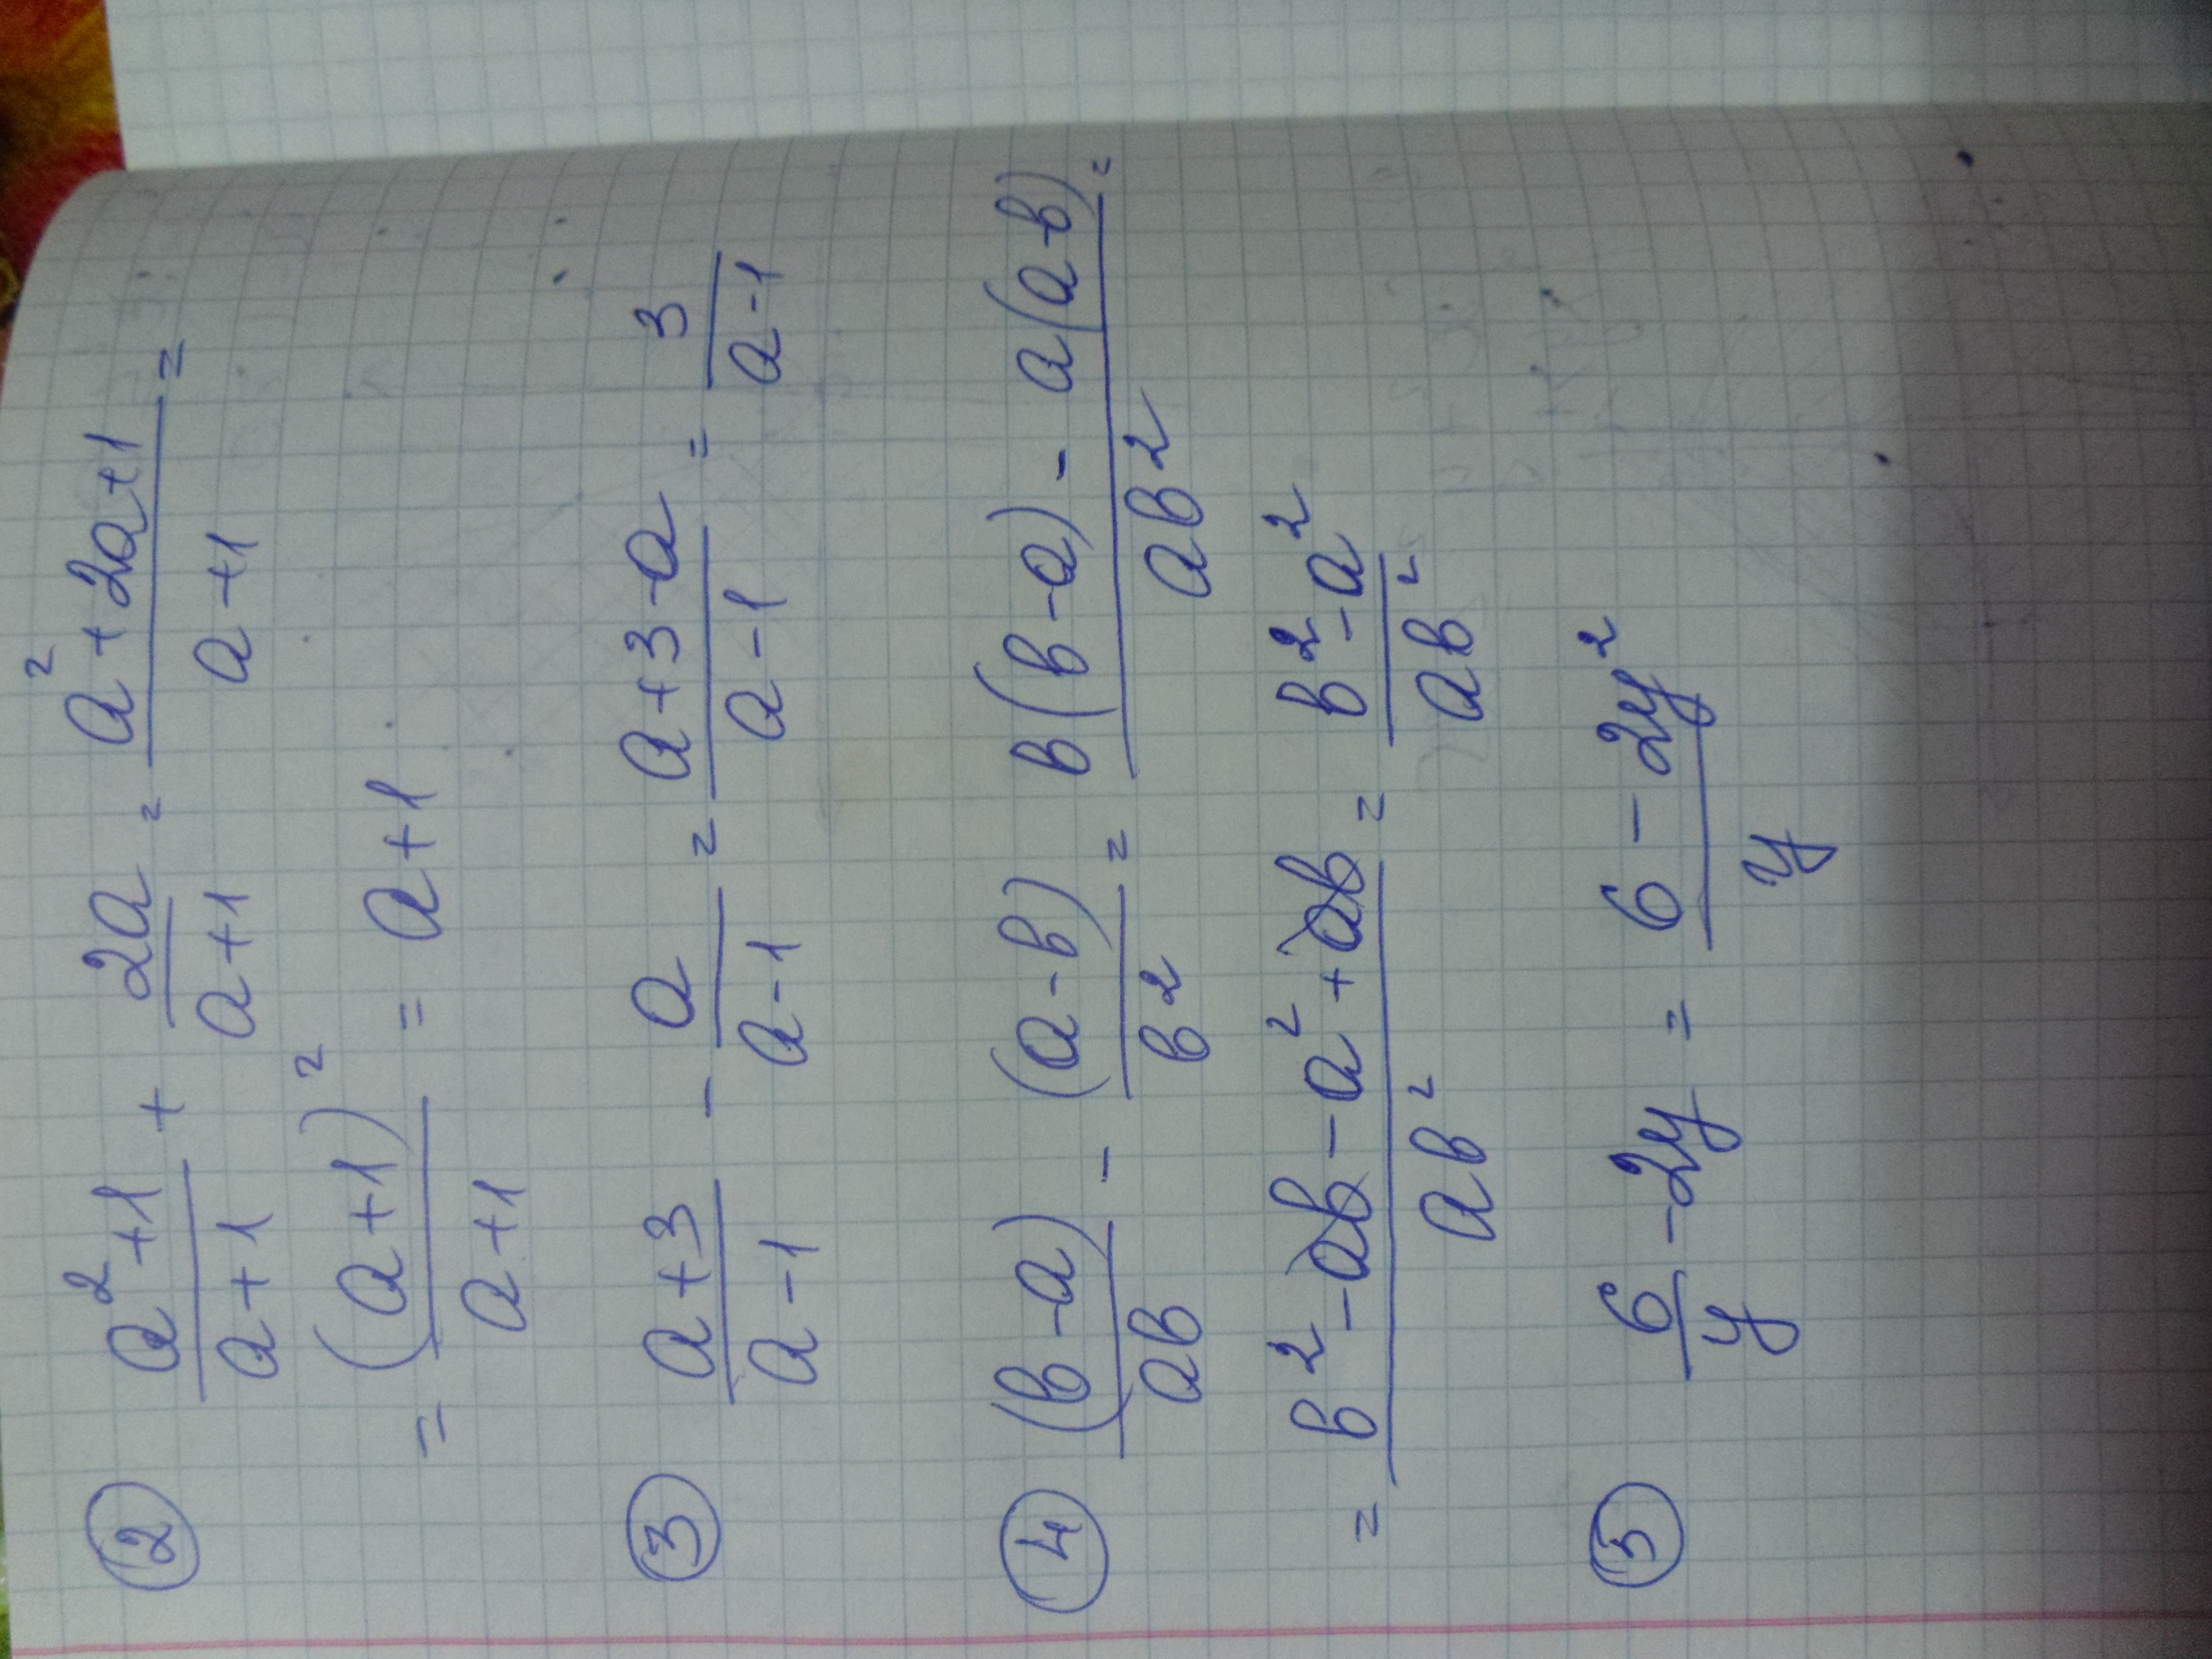 ② (a²+1)/(a+1) + 2a/(a+1) = (a²+2a+1)/(a+1) =
= (a+1)²/(a+1) = a+1
③ (a+3)/(a-1) - a/(a-1) = (a+3-a)/(a-1) = 3/(a-1)
④ (в-a)/aв - (a-в)/в² = (в(в-a) - a(a-в))/aв² =
= (в²-aв-a²+aв)/aв² = (в²-a²)/aв²
⑤ 6/y - 2y = (6-2y²)/y